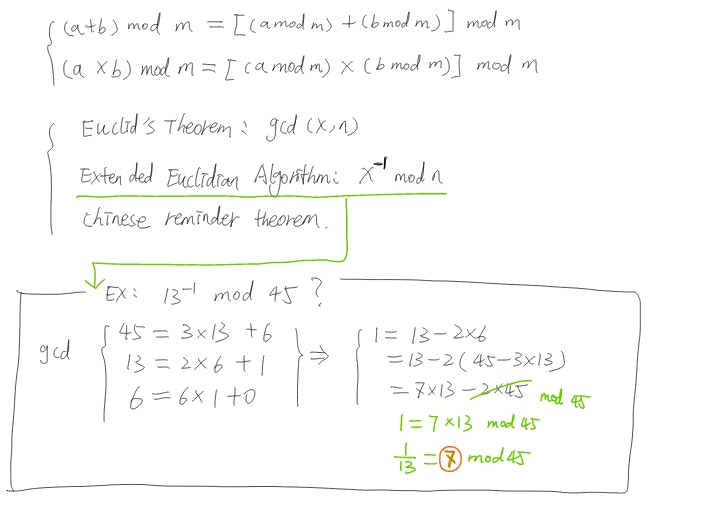 (a+b) mod m = [(a mod m) + (b mod m)] mod m
(a × b) mod m = [(a mod m) × (b mod m)] mod m
Euclid's Theorem: gcd (x, n)
Extended Euclidian Algorithm: x⁻¹ mod n
Chinese reminder theorem.
EX: 13⁻¹ mod 45 ?
gcd
45 = 3×13 + 6
13 = 2×6 + 1
6 = 6×1 + 0
⇒
1 = 13 - 2×6
= 13 - 2(45 - 3×13)
= 7×13 - 2×45 mod 45
1 = 7×13 mod 45
1/13 = 7 mod 45